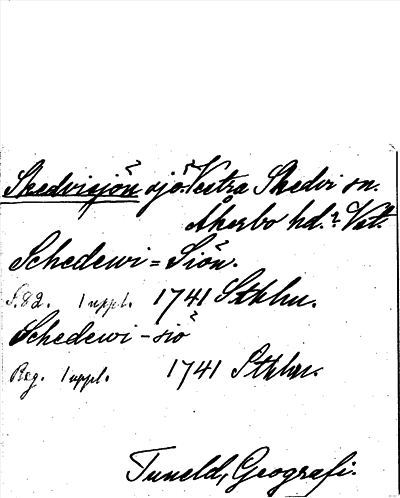 Skedvisjön sjö. Vestra Skedvi sn.
Åkerbo hd. Vstl.
Schedewi = Siön.
S. 82. 1 uppl. 1741 Stkhm.
Schedewi - siö
Reg. 1 uppl. 1741 Stkhm.
Tuneld, Geografi.